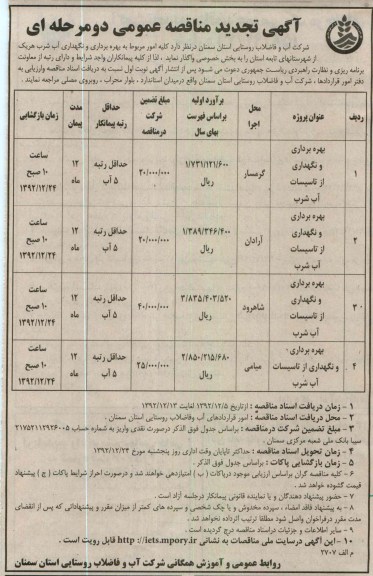 آگهی تجدید مناقصه عمومی دومرحله ای
شرکت آب و فاضلاب روستایی استان سمنان درنظر دارد کلیه امور مربوط به بهره برداری و نگهداری آب شرب هریک
از شهرستانهای تابعه استان را به بخش خصوصی واگذار نماید . لذا از کلیه پیمانکاران واجد شرایط و دارای رتبه از معاونت
برنامه ریزی و نظارت راهبردی ریاست جمهوری دعوت می شود پس از انتشار آگهی نوبت اول نسبت به دریافت اسناد مناقصه وارزیابی به
دفتر امور قراردادها ، شرکت آب و فاضلاب روستایی استان سمنان واقع درمیدان استاندارد ، بلوار محراب ، روبروی مصلی مراجعه نمایند .
ردیف
عنوان پروژه
محل اجرا
برآورد اولیه براساس فهرست بهای سال
مبلغ تضمین شرکت درمناقصه
حداقل رتبه پیمانکار
مدت پیمان
زمان بازگشایی
۱
بهره برداری و نگهداری از تاسیسات آب شرب
گرمسار
۱/۷۳۱/۱۲۱/۶۰۰ ریال
۲۰/۰۰۰/۰۰۰
حداقل رتبه ۵ آب
۱۲ ماه
ساعت ۱۰ صبح ۱۳۹۲/۱۲/۲۴
۲
بهره برداری و نگهداری از تاسیسات آب شرب
آرادان
۱/۳۸۹/۳۴۶/۴۰۰ ریال
۲۰/۰۰۰/۰۰۰
حداقل رتبه ۵ آب
۱۲ ماه
ساعت ۱۰ صبح ۱۳۹۲/۱۲/۲۴
۳
بهره برداری و نگهداری از تاسیسات آب شرب
شاهرود
۳/۸۳۵/۴۰۳/۵۲۰ ریال
۴۰/۰۰۰/۰۰۰
حداقل رتبه ۵ آب
۱۲ ماه
ساعت ۱۰ صبح ۱۳۹۲/۱۲/۲۴
۴
بهره برداری و نگهداری از تاسیسات آب شرب
میامی
۲/۸۵۰/۲۱۵/۶۸۰ ریال
۲۵/۰۰۰/۰۰۰
حداقل رتبه ۵ آب
۱۲ ماه
ساعت ۱۰ صبح ۱۳۹۲/۱۲/۲۴
۱ - زمان دریافت اسناد مناقصه : ازتاریخ ۱۳۹۲/۱۲/۵ لغایت ۱۳۹۲/۱۲/۱۳
۲ - محل دریافت اسناد مناقصه : امور قراردادهای آب وفاضلاب روستایی استان سمنان .
۳ - مبلغ تضمین شرکت درمناقصه : براساس جدول فوق الذکر درصورت نقدی واریز به شماره حساب ۲۱۷۵۲۱۱۲۹۲۶۰۰۵
سیبا بانک ملی شعبه مرکزی سمنان .
۴ - زمان تحویل اسناد مناقصه : حداکثر تاپایان وقت اداری روز پنجشنبه مورخ ۱۳۹۲/۱۲/۲۲
۵ - زمان بازگشایی پاکات : براساس جدول فوق الذکر
۶ - کلیه مناقصه گران براساس ارزیابی موجود درپاکات ( ب ) امتیازدهی خواهند شد و درصورت احراز شرایط پاکات ( ج ) پیشنهاد
قیمت گشوده خواهد شد .
۷ - حضور پیشنهاد دهندگان و یا نماینده قانونی پیمانکار درجلسه آزاد است .
۸ - به پیشنهاد فاقد امضاء ، سپرده مخدوش و یا چک شخصی و سپرده های کمتر از میزان مقرر و پیشنهاداتی که پس از انقضای
مدت مقرر درفراخوان واصل شود مطلقا ترتیب اثرداده نخواهد شد .
۹ - سایر اطلاعات و جزئیات دراسناد مناقصه درج گردیده است .
۱۰ - این آگهی درسایت ملی مناقصات به نشانی http ://iets.mpory.ir قابل رویت است .
م الف ۲۷۰۷
روابط عمومی و آموزش همگانی شرکت آب و فاضلاب روستایی استان سمنان